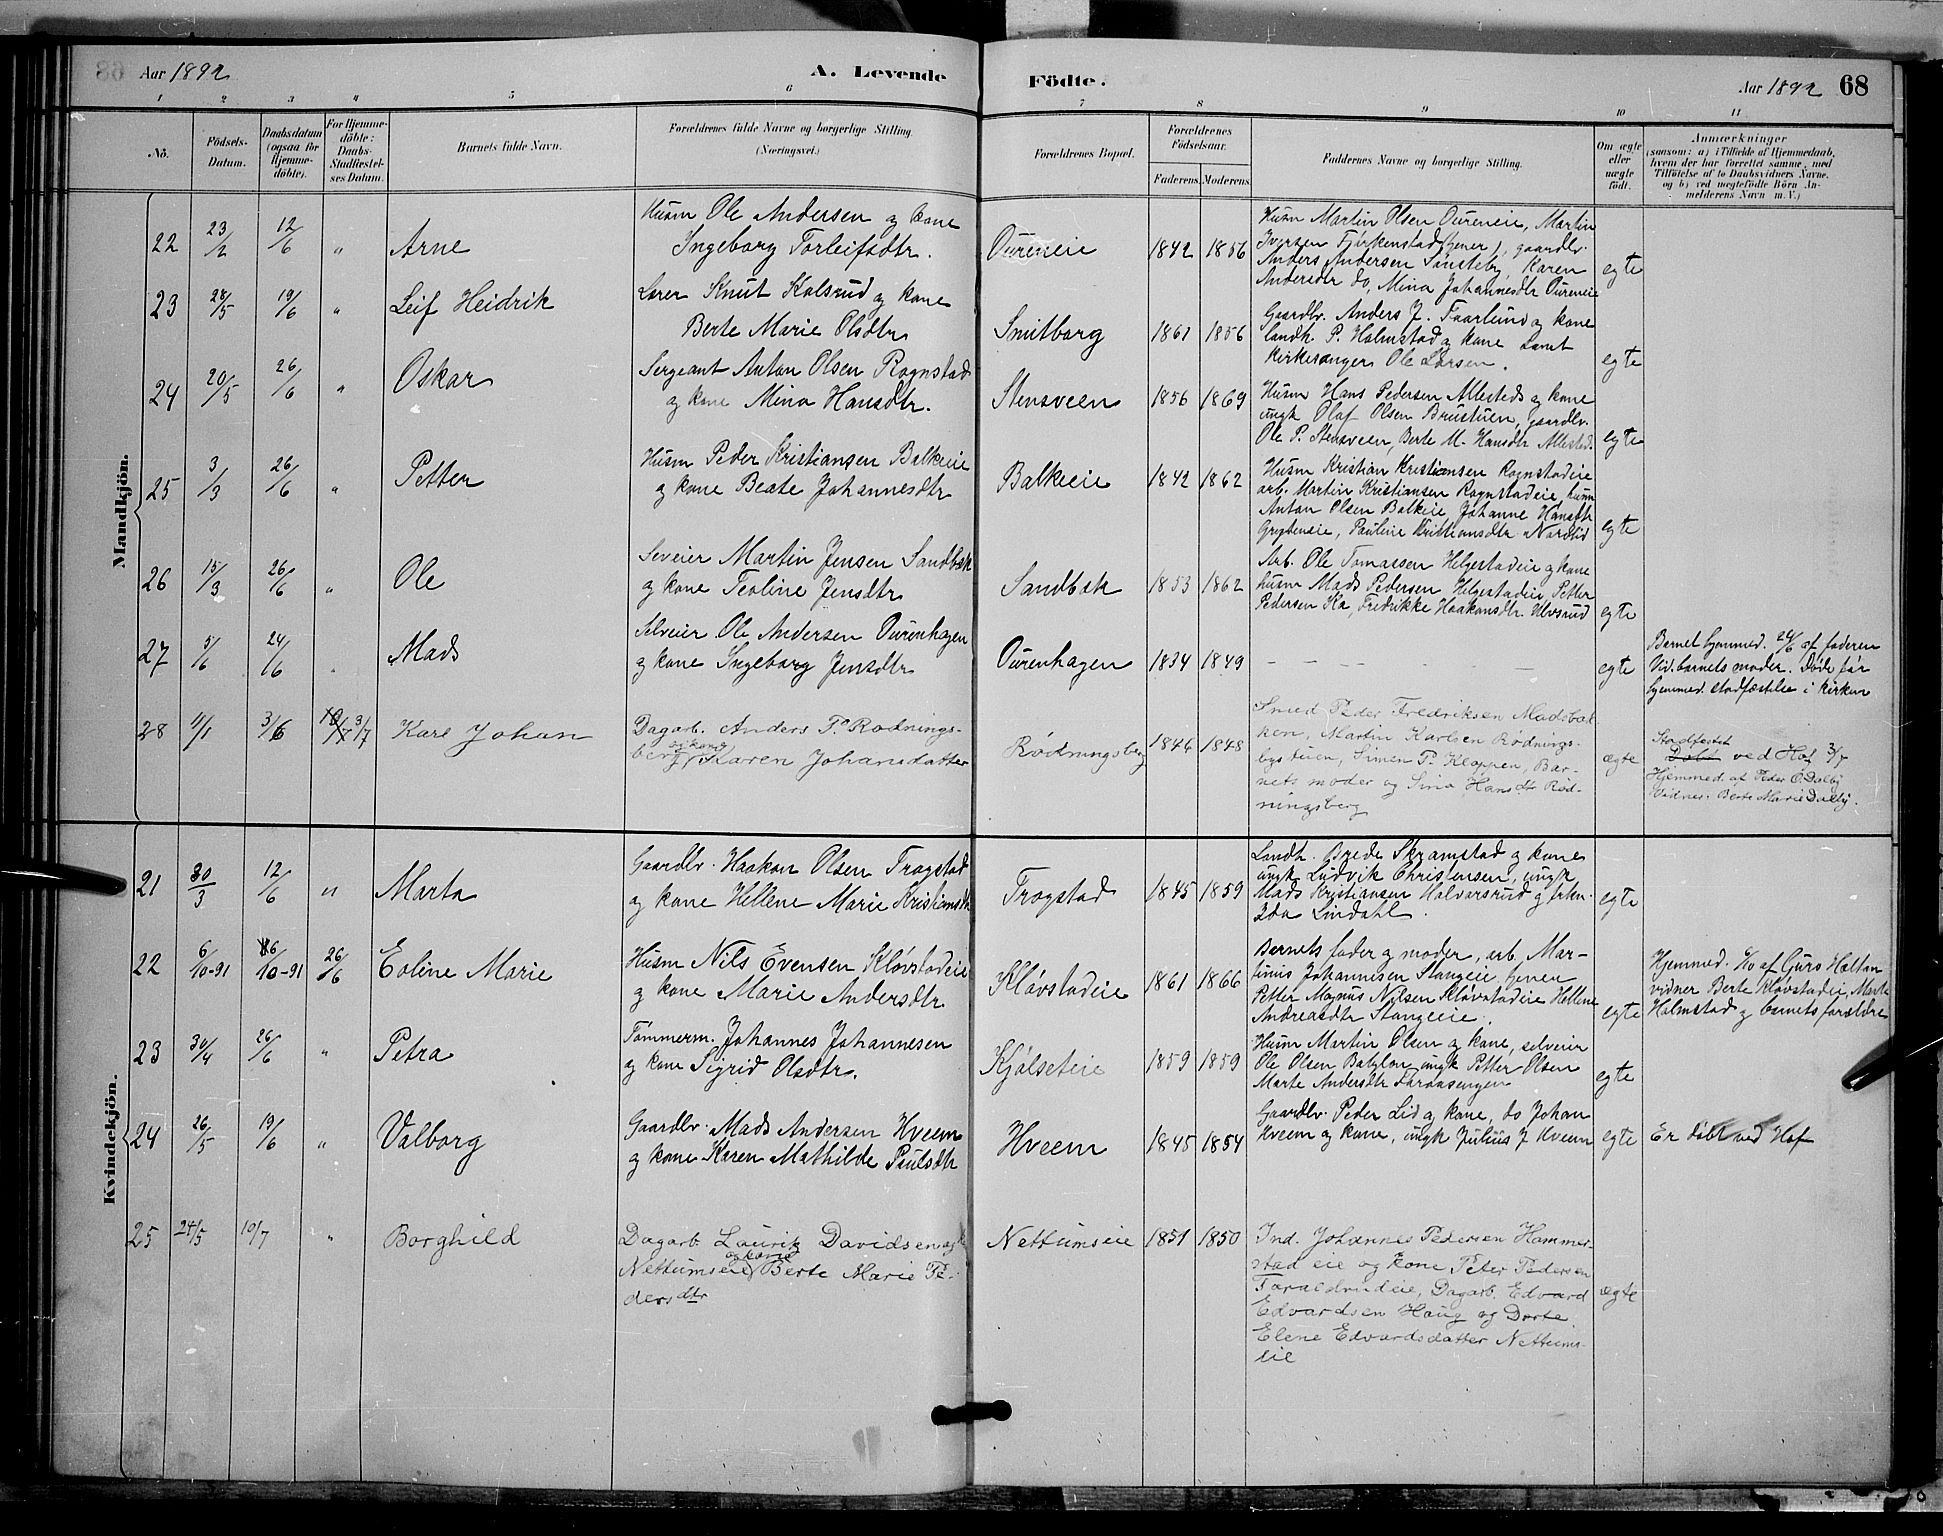 Aar 1892
A. Levende
Födte.
Aar 1892
68
1 2 3 4 5 6 7 8 9 10 11
No.
Födsels-
Datum.
Daabsdatum
(ogsaa for
Hjemme-
döbte).
For Hjemme-
döbte:
Daabs-
Stadfæstel-
ses Datum.
Barnets fulde Navn.
Forældrenes fulde Navne og borgerlige Stilling.
(Næringsvei.)
Forældrenes Bopæl.
Forældrenes
Födselsaar.
Faderens.
Moderens.
Faddernes Navne og borgerlige Stilling.
Om ægte
eller
uægte
født.
Anmærkninger
(saasom: a) i Tilfælde af Hjemmedaab,
hvem der har forrettet samme, med
Tilföielse af to Daabsvidners Navne.
og b) ved uægtefödte Börn An-
melderens Navn m. V.)
Mandkjön.
22 23/2 12/6 " Arne
Husm Ole Andersen og kone
Ingeborg Torleifsdtr.
Oureneie 1842 1856
Husm Martin Olsen Oureneie, Martin
Iversen Fjirkenstad (tjener), gaardbr.
Anders Andersen Sønsteby, Karen
Andersdtr do, Mina Johannesdtr Oureneie
egte
23 28/5 19/6 " Leif Heidrik
Lærer Knut Kolsrud og kone
Berte Marie Olsdtr
Smitborg 1861 1856
Gaardbr. Anders J. Faarlund og kone
landh. P. Halmstad og kone samt
kirkesanger Ole Larsen.
egte
24 20/5 26/6 " Oskar
Sergeant Anton Olsen Rognstad
og kone Mina Hansdtr.
Stensveen 1856 1869
Husm Hans Pedersen Allestads og kone
ungk Olaf Olsen Brustuen, gaardbr.
Ole P. Stensveen, Berte M. Hansdtr Allestad.
egte
25 3/3 26/6 " Petter
Husm Peder Kristiansen Balkeeie
og kone Beate Johannesdtr
Balkeeie 1842 1862
Husm Kristian Kristiansen Rognstadeie
arb. Martin Kristiansen Rognstadeie, husm
Anton Olsen Balkeie Johanne Hansdtr
Pauline Kristiansdtr Nordlid
egte
26 15/3 26/6 " Ole
Selveier Martin Jensen Sandbæk
og kone Teoline Jensdtr
Sandbæk 1853 1862
Arb. Ole Tomassen Helgestadeie og kone
husm Mads Pedersen Helgestadeie Petter
Pedersen Fredrikke Haakonsdtr Ulvsrud
egte
27 5/6 24/6 Mads
Selveier Ole Andersen Ourenhagen
og kone Ingeborg Jensdtr
Ourenhagen 1834 1849
egte
Barnet hjemmed. 24/6 af faderen
Vid. barnets moder. Døde før
hjemmed. stadfæstelse i kirken
28 11/1 3/6 3/7 Karl Johan
Dagarb. Anders P. Rødnings-
berg og kone Karen Johansdatter
Rødningsberg 1846 1848
Smed Peder Fredriksen Madsbak-
ken, Martin Karlsen Rødnings-
bystuen, Simen P. Kloppen, Bar-
nets moder og Sina Hansdtr Rød-
ningsberg
ægte
Stadfestet
Døbt ved Hof 3/7
Hjemmed. af Peder O. Dalby
Vidner: Berte Marie Dalby.
Kvindekjön.
21 30/3 12/6 " Marta
Gaardbr. Haakon Olsen Trogstad
og kone Hellene Marie Kristiansdtr
Trogstad 1845 1859
Landh. Brede Skramstad og kone
ungk Ludvik Christensen, ungk
Mads Kristiansen Halvorsrud og frkn
Ida Lindahl.
egte
22 6/10-91 6/10-91 26/6 Eoline Marie
Husm Nils Evensen Kløvstadeie
og kone Marie Andersdtr
Kløvstadeie 1861 1866
Barnets fader og moder, arb. Mar-
tinus Johannesen Stangeie, tjener
Petter Magnus Nilsen Kløvstadeie Hellene
Andreasdtr Stangeie.
egte
Hjemmed. af Guro Holtan
vidner Berte Kløvstadeie, Marte
Halmstad og barnets forældre
23 30/4 26/6 " Petra
Tømmerm. Johannes Johannesen
og kone Sigrid Olsdtr.
Kjølseteie 1859 1859
Husm Martin Olsen og kone, selveier
Ole Olsen Babylon, ungk Petter Olsen
Marte Andersdtr Faraasengen
egte
24 26/5 19/6 " Valborg
Gaardbr. Mads Andersen Hveem
og kone Karen Mathilde Paulsdtr
Hveem 1845 1854
Gaardbr. Peder Lid og kone, do Johan
Hveem og kone, ungk Julius J Hveem
egte
Er døbt ved Hof
25 24/5 10/7 " Borghild
Dagarb. Lauritz Davidsen
Nettumseie og kone Berte Marie Pe-
dersdtr
Nettumseie 1851 1850
Ind. Johannes Pedersen Hammer-
stad eie og kone Peter Pedersen
Taraldrudeie, Dagarb. Edvard
Edvardsen Haug og Dorte
Elene Edvardsdatter Nettums-
eie
ægte